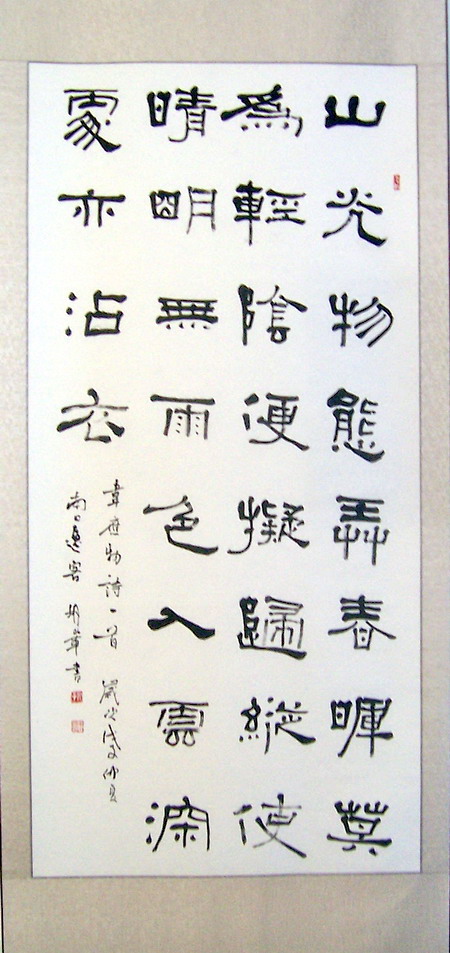 山光物態弄春暉莫
為輕陰便擬歸縱使
晴明無雨色入雲深
處亦沾衣
韋應物詩一首 歲次戊
書